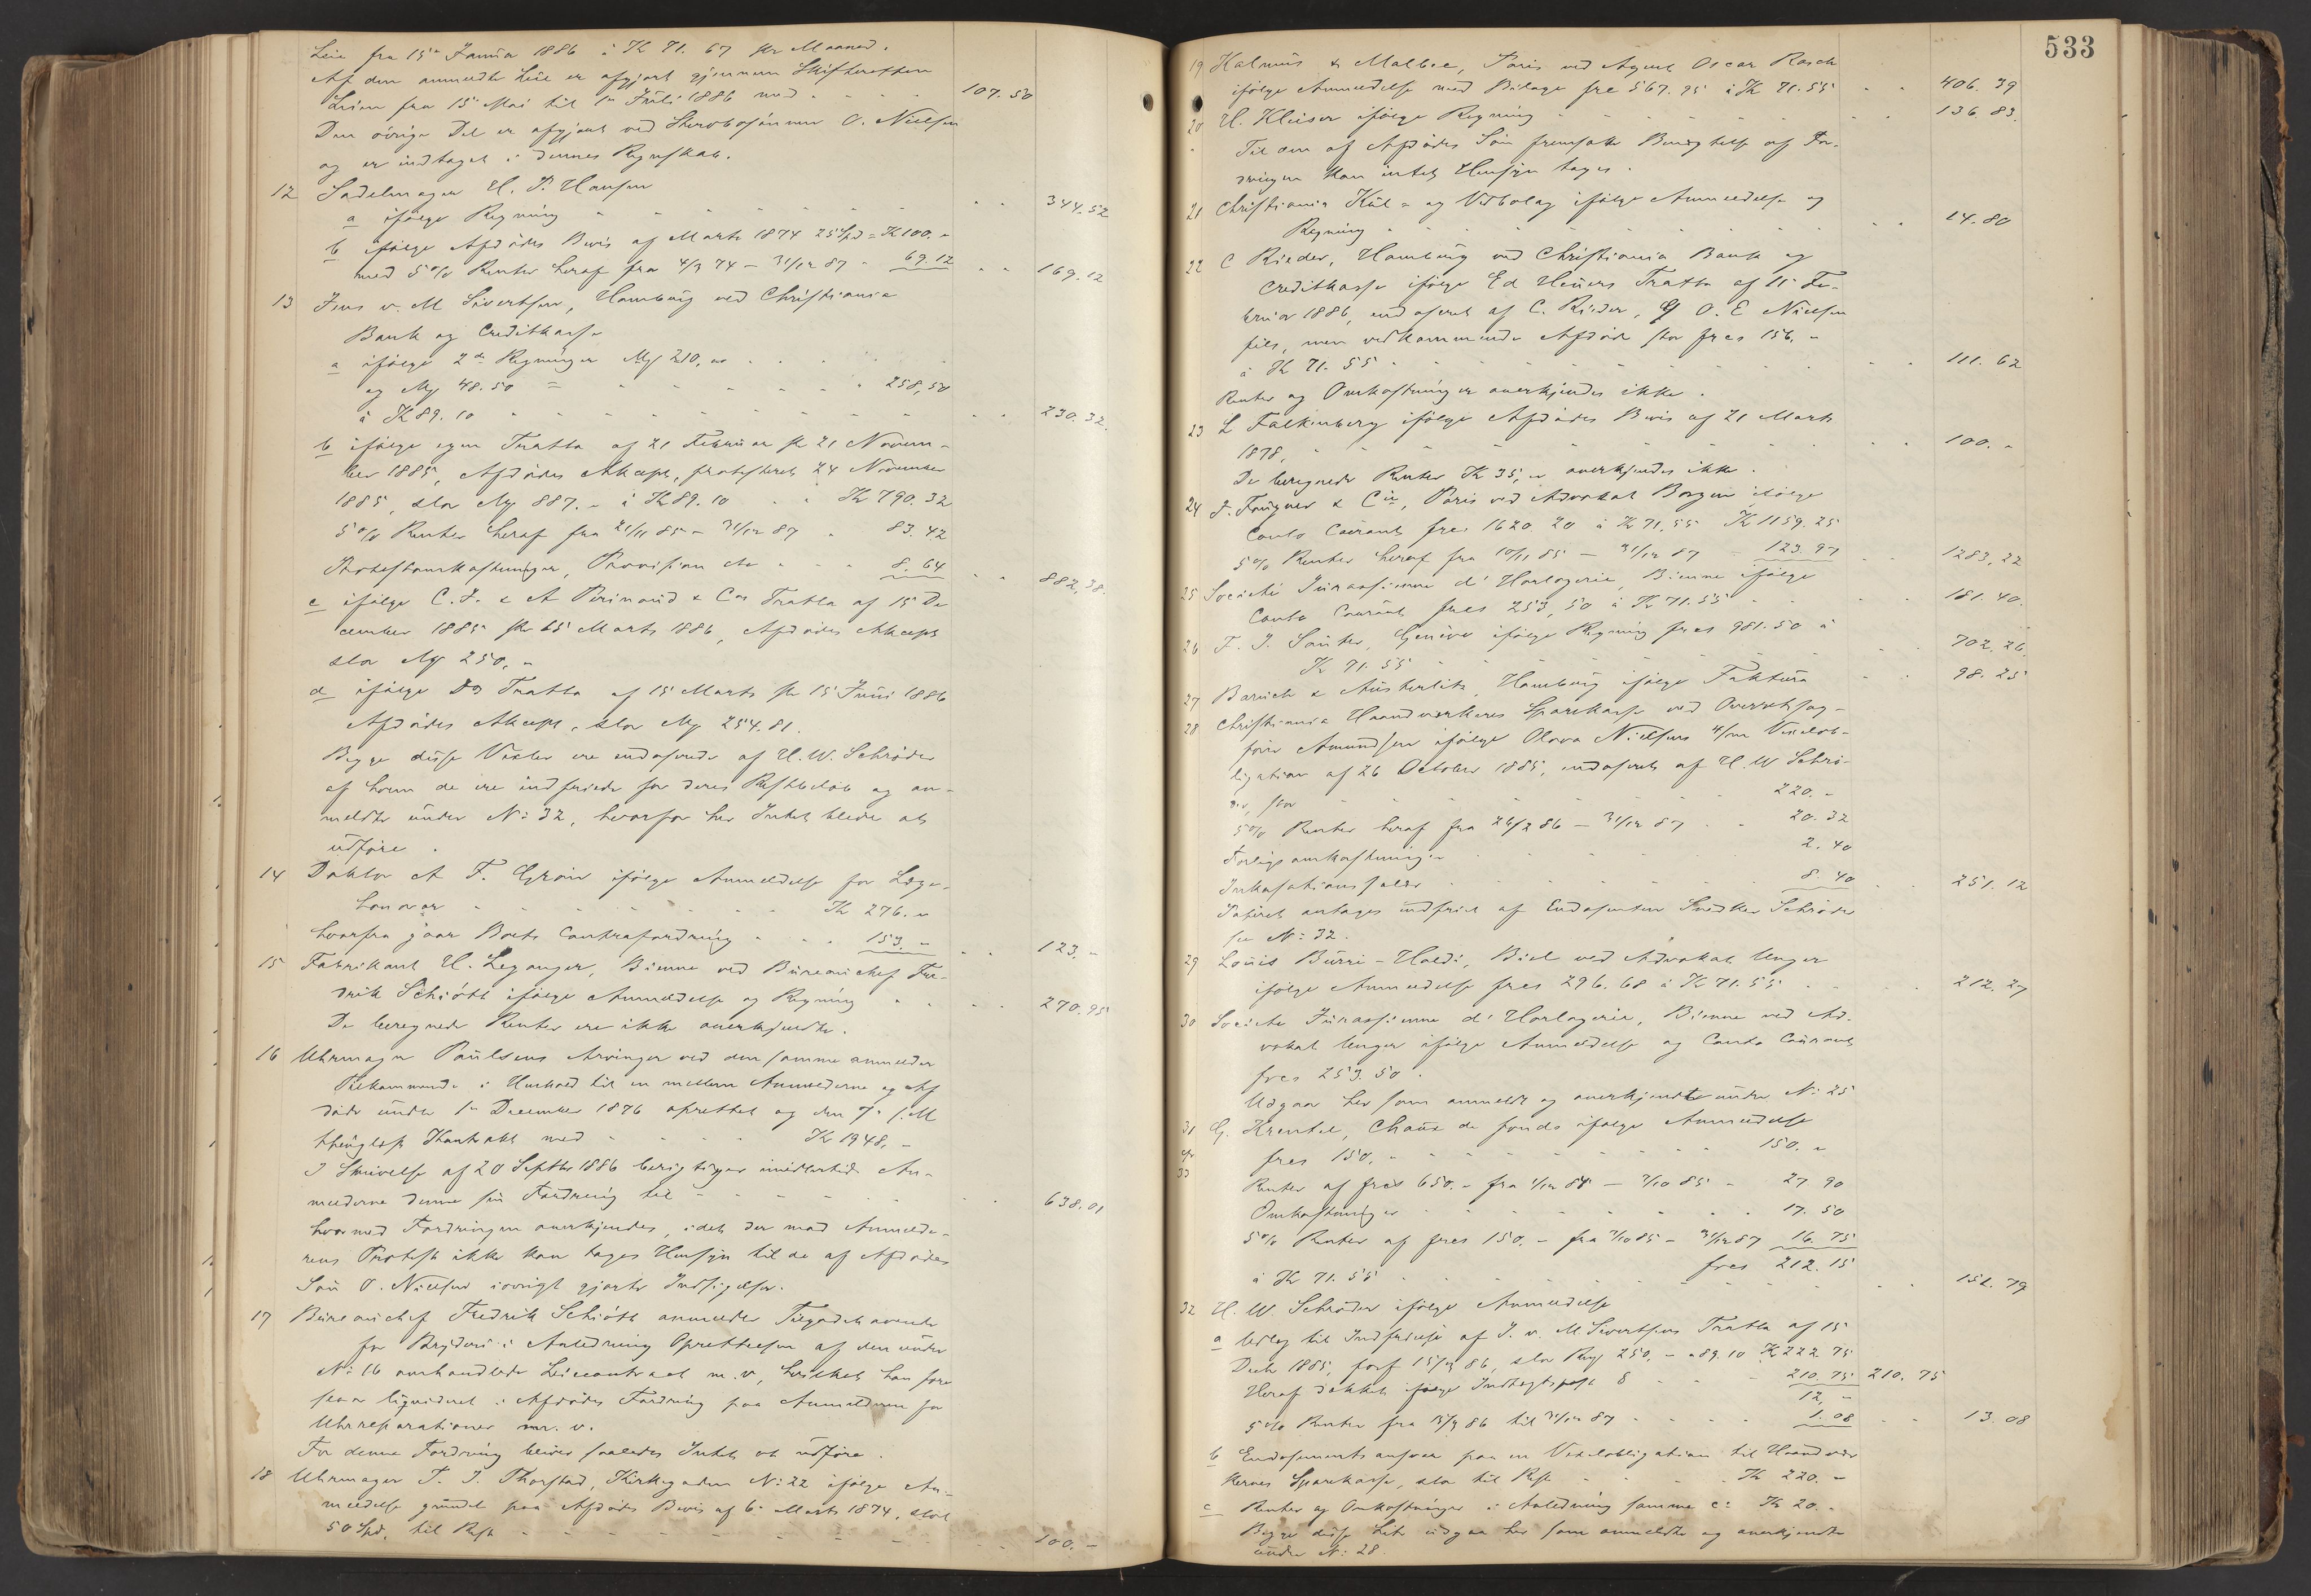 Leie fra 15de Januar 1886 à Kr 71. 67 pr Maaned.
Af den anmeldte Leie er afgjort gjennem Skifteretten
Leien fra 15 Mai til 1ste Juli 1886 med - - - - 107. 50
Den övrige Del er afgjort ved Stervbosönnen O. Nielsen
og er indtaget i dennes Regnskab.
12 Sadelmager H. P. Hansen
a ifölge Regning - - - - - - - - 344. 52
b ifölge Afdödes Bevis af Marts 1874 25 Spd = Kr 100. -
med 5 % Renter heraf fra 4/3 74 - 31/12 87 - 69. 12 - - 169. 12
13 Jens v. M Sivertsen, Hamburg ved Christiania
Bank og Creditkasse
a ifölge 2de Regninger Mk 210, -
og Mk 48. 50 = - - - - - - 258, 50
à Kr 89. 10 - - - - - - - - 230. 32.
b ifölge egen Tratta af 21 Februar pr 21 Novem-
ber 1885, Afdödes Akcept, protesteret 24 November
1885, stor Mk 887. - à Kr 89. 10 - - Kr 790. 32
5 % Renter heraf fra 21/11 85 - 31/12 87 - 83. 42
Protestomkostninger, Provision etc - - - 8. 64 - - 882, 38.
c ifölge C. F. & A Perinaud & Cos Tratta af 15 De
cember 1885 pr 15 Marts 1886, Afdödes Akcept
stor Mk 250, -
d ifölge Do Tratta af 15 Marts pr 15 Juni 1886
Afdödes Akcept, stor Mk 254. 81.
Begge disse Vexler ere endosserede af H. W. Schröder
af hvem de ere indfriede for deres Restbelöb og an-
meldte under No 32, hvorfor her Intet bliver at
udföre.
14 Doktor A F. Grön ifölge Anmeldelse for Læge-
honorar - - - - - - Kr 276. -
hvorfra gaar Boets Contrafordring - - - 153. - - - 123. -
15 Fabrikant H. Leganger, Bienne ved Bureauchef Fre-
drik Schiött ifölge Anmeldelse og Regning - - - - 270. 95
De beregnede Renter ere ikke anerkjendte.
16 Uhrmager Paulsens Arvinger ved den samme anmelder
Tilkommende i Henhold til en mellem Anmelderne og Af
döde under 1ste December 1876 oprettet og den 7de s. M
thinglæst Kontrakt med - - - - Kr 1948, -
I Skrivelse af 20 Septbr 1886 berigtiger imidlertid An-
melderne denne sin Fordring til - - - - - - 638. 01
hvormed Fordringen anerkjendes, idet der mod Anmelde-
rens Protest ikke kan tages Hensyn til de af Afdödes
Sön O. Nielsen iövrigt gjorte Indsigelser.
17 Bureauchef Fredrik Schiött anmelder Tilgodehavende
for Bryderi i Anledning Oprettelsen af den under
No 16 omhandlede Leiecontract m. v, hvilket han fore
slaar liqvideret i Afdödes Fordring paa Anmelderen for
Uhrreparationer m. v.
For denne Fordring bliver saaledes Intet at udföre.
18 Uhrmager T. J. Thorstad, Kirkegaden No 22 ifölge An-
meldelse grundet paa Afdödes Bevis af 6 Marts 1874, stort
50 Spd. til Rest - - - - - - - - 100. -
533
19 Halmus & Malbec, Paris ved Agent Oscar Rasch
ifölge Anmeldelse med Bilage frc 567. 95 à Kr 71. 55 - - 406. 39
20 H. Kleiser ifölge Regning - - - - - - 136. 83.
Til den af Afdödes Sön fremsatte Benægtelse af For-
dringen kan intet Hensyn tages.
21 Christiania Kul- og Vedbolag ifölge Anmeldelse og
Regning - - - - - - - - 14. 80
22 C Rieder, Hamburg ved Christiania Bank og
Creditkasse ifölge Ed Heuers Tratta af 15 Fe-
bruar 1886, endosseret af C. Rieder, paa O. E Nielsen
fils, men vedkommende Afdöde stor frcs 156, -
à Kr 71. 55 - - - - - - - - 111. 62
Renter og Omkostninger anerkjendes ikke.
23 L Falkenberg ifölge Afdödes Bevis af 21 Marts
1878, - - - - - - - - 100. -
De beregnede Renter Kr 35, - anerkjendes ikke.
24 F. Fougner & Cie, Paris ved Advokat Borgen ifölge
Conto Courant frcs 1620. 20 à Kr 71, 55 Kr 1159. 25
5 % Renter heraf fra 10/11 85 - 31/12 87 - 123. 97 - 1283, 22
25 Societé Jurassienne d' Horlogerie, Bienne ifölge
Conto Courant frcs 253, 50 à Kr 71. 55 - - - 181. 40.
26 F. J. Sauter, Genève ifölge Regning frcs 981. 50 à
Kr 71. 55 - - - - - - - 702. 26.
27 Baruch & Austerlitz, Hamburg ifölge Faktura - - 98. 25
28 Christiania Haandværkeres Sparekasse ved Overretssag-
förer Amundsen ifölge Olava Nielsens 4/mr Vexelob-
ligation af 26 October 1885, endosseret af H. W Schrö-
der, stor - - - - - - 220. -
5 % Renter heraf fra 26/2 86 - 31/12 87 - - 20. 32
Forligsomkostninger - - - - - 2. 40
Inkassationssalær - - - - - 8. 40 - - 251. 12
Papiret antages indfriet af Endossenten Snedker Schröder
see No 32.
29 Louis Burri-Haldi, Biel ved Advokat Unger
ifölge Anmeldelse frcs 296. 68 à Kr 71. 55 - - - 212. 27
30 Societe Jurassienne d' Horlogerie, Bienne ved Ad-
vokat Unger ifölge Anmeldelse og Conto Courant
frcs 253. 50.
Udgaar her som anmeldt og anerkjendt under No 25
31 G. Krentel, Chaux de fonds ifölge Anmeldelse
og
33 frcs 150. - - - - - - - - 150. -
Renter af frcs 650. - fra 1/12 84 - 7/10 85 - 27. 90
Omkostninger - - - - - - - 17. 50
5 % Renter af frcs 150. - fra 7/10 85 - 31/12 87 16. 75
frcs 212. 15
à Kr 71. 55 - - - - - - - 151. 79
32 H. W. Schröder ifölge Anmeldelse
a Udlæg til Indfrielse af J. v. M Sivertsens Tratta af 15
Decbr 1885, forf 15/3 86, stor Rmk 250. - à 89. 10 Kr 222 75
Heraf dækket ifölge Indtægtspost 8 - - - 210. 75 210. 75
12, -
5 % Renter fra 15/3 86 til 31/12 87 - - - 1. 08 - - 13. 08
b Endossementsansvar paa en Vexelobligation til Haandvær
kernes Sparekasse, stor til Rest - - - - Kr 220. -
c Renter og Omkostninger i Anledning samme c: Kr 20. -
Begge disse Litr udgaa her som anmeldte og anerkjendte
under No 28.